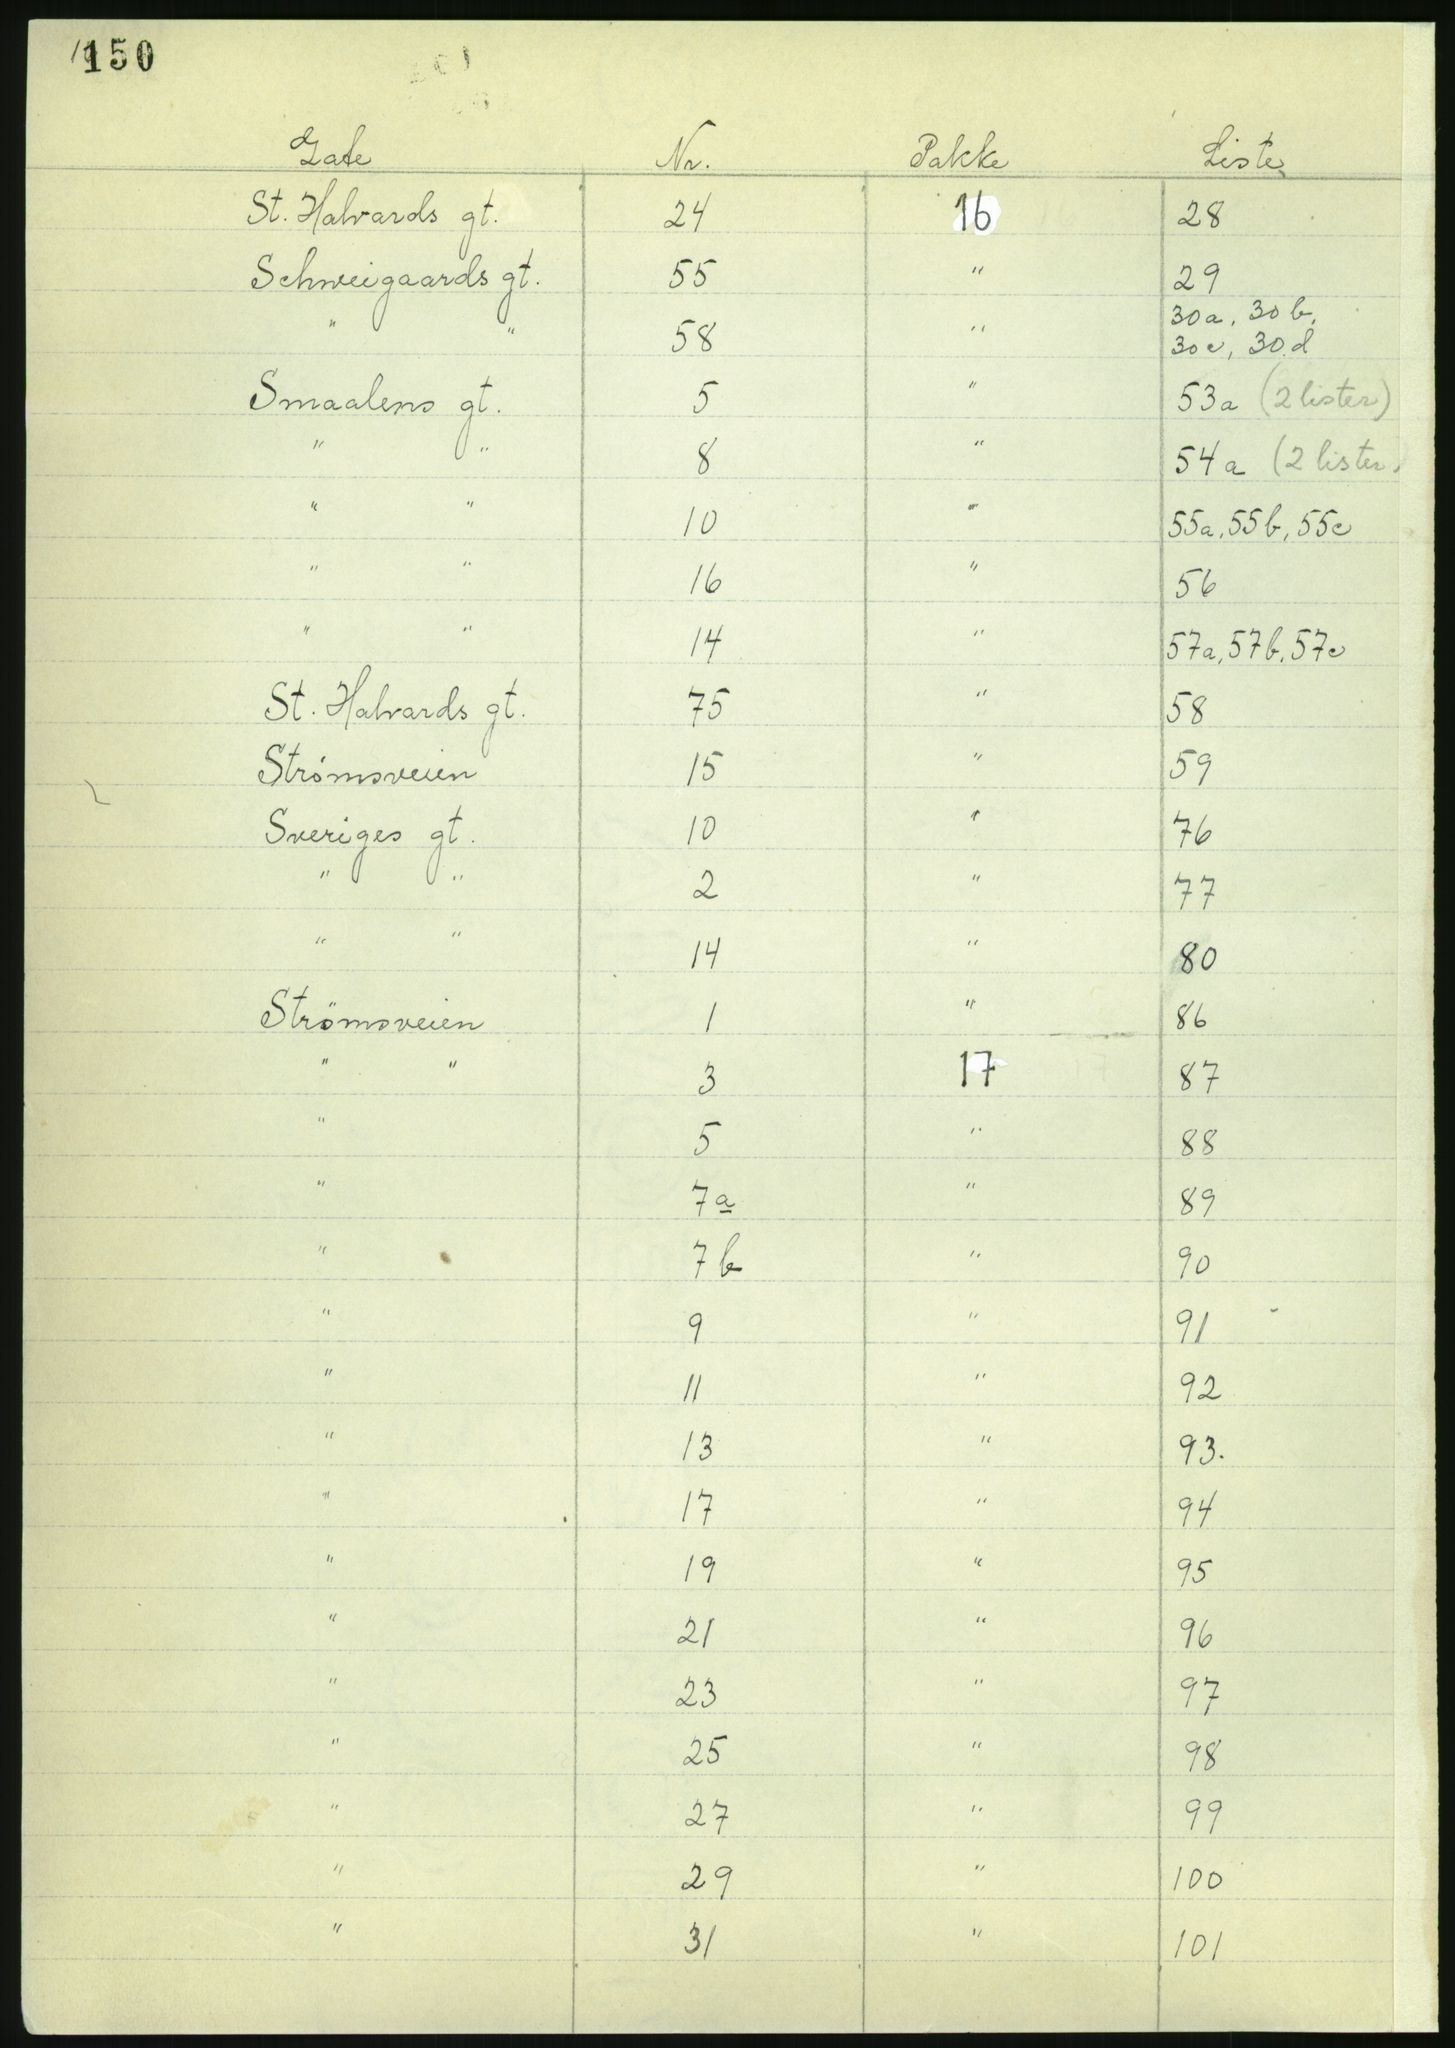 150
Gate Nr. Pakke Liste
St. Halvards gt. 24 16 28
Schweigaards gt. 55 " 29
" " 58 " 30a, 30b, 30c, 30d
Smaalens gt. 5 " 53a (2 lister)
" " 8 " 54a (2 lister)
" " 10 " 55a, 55b, 55c
" " 16 " 56
" " 14 " 57a, 57b, 57c
St. Halvards gt. 75 " 58
Strömsveien 15 " 59
Sveriges gt. 10 " 76
" " 2 " 77
" " 14 " 80
Strömsveien 1 " 86
" " 3 17 87
" 5 " 88
" 7a " 89
" 7b " 90
" 9 " 91
" 11 " 92
" 13 " 93.
" 17 " 94
" 19 " 95
" 21 " 96
" 23 " 97
" 25 " 98
" 27 " 99
" 29 " 100
" 31 " 101